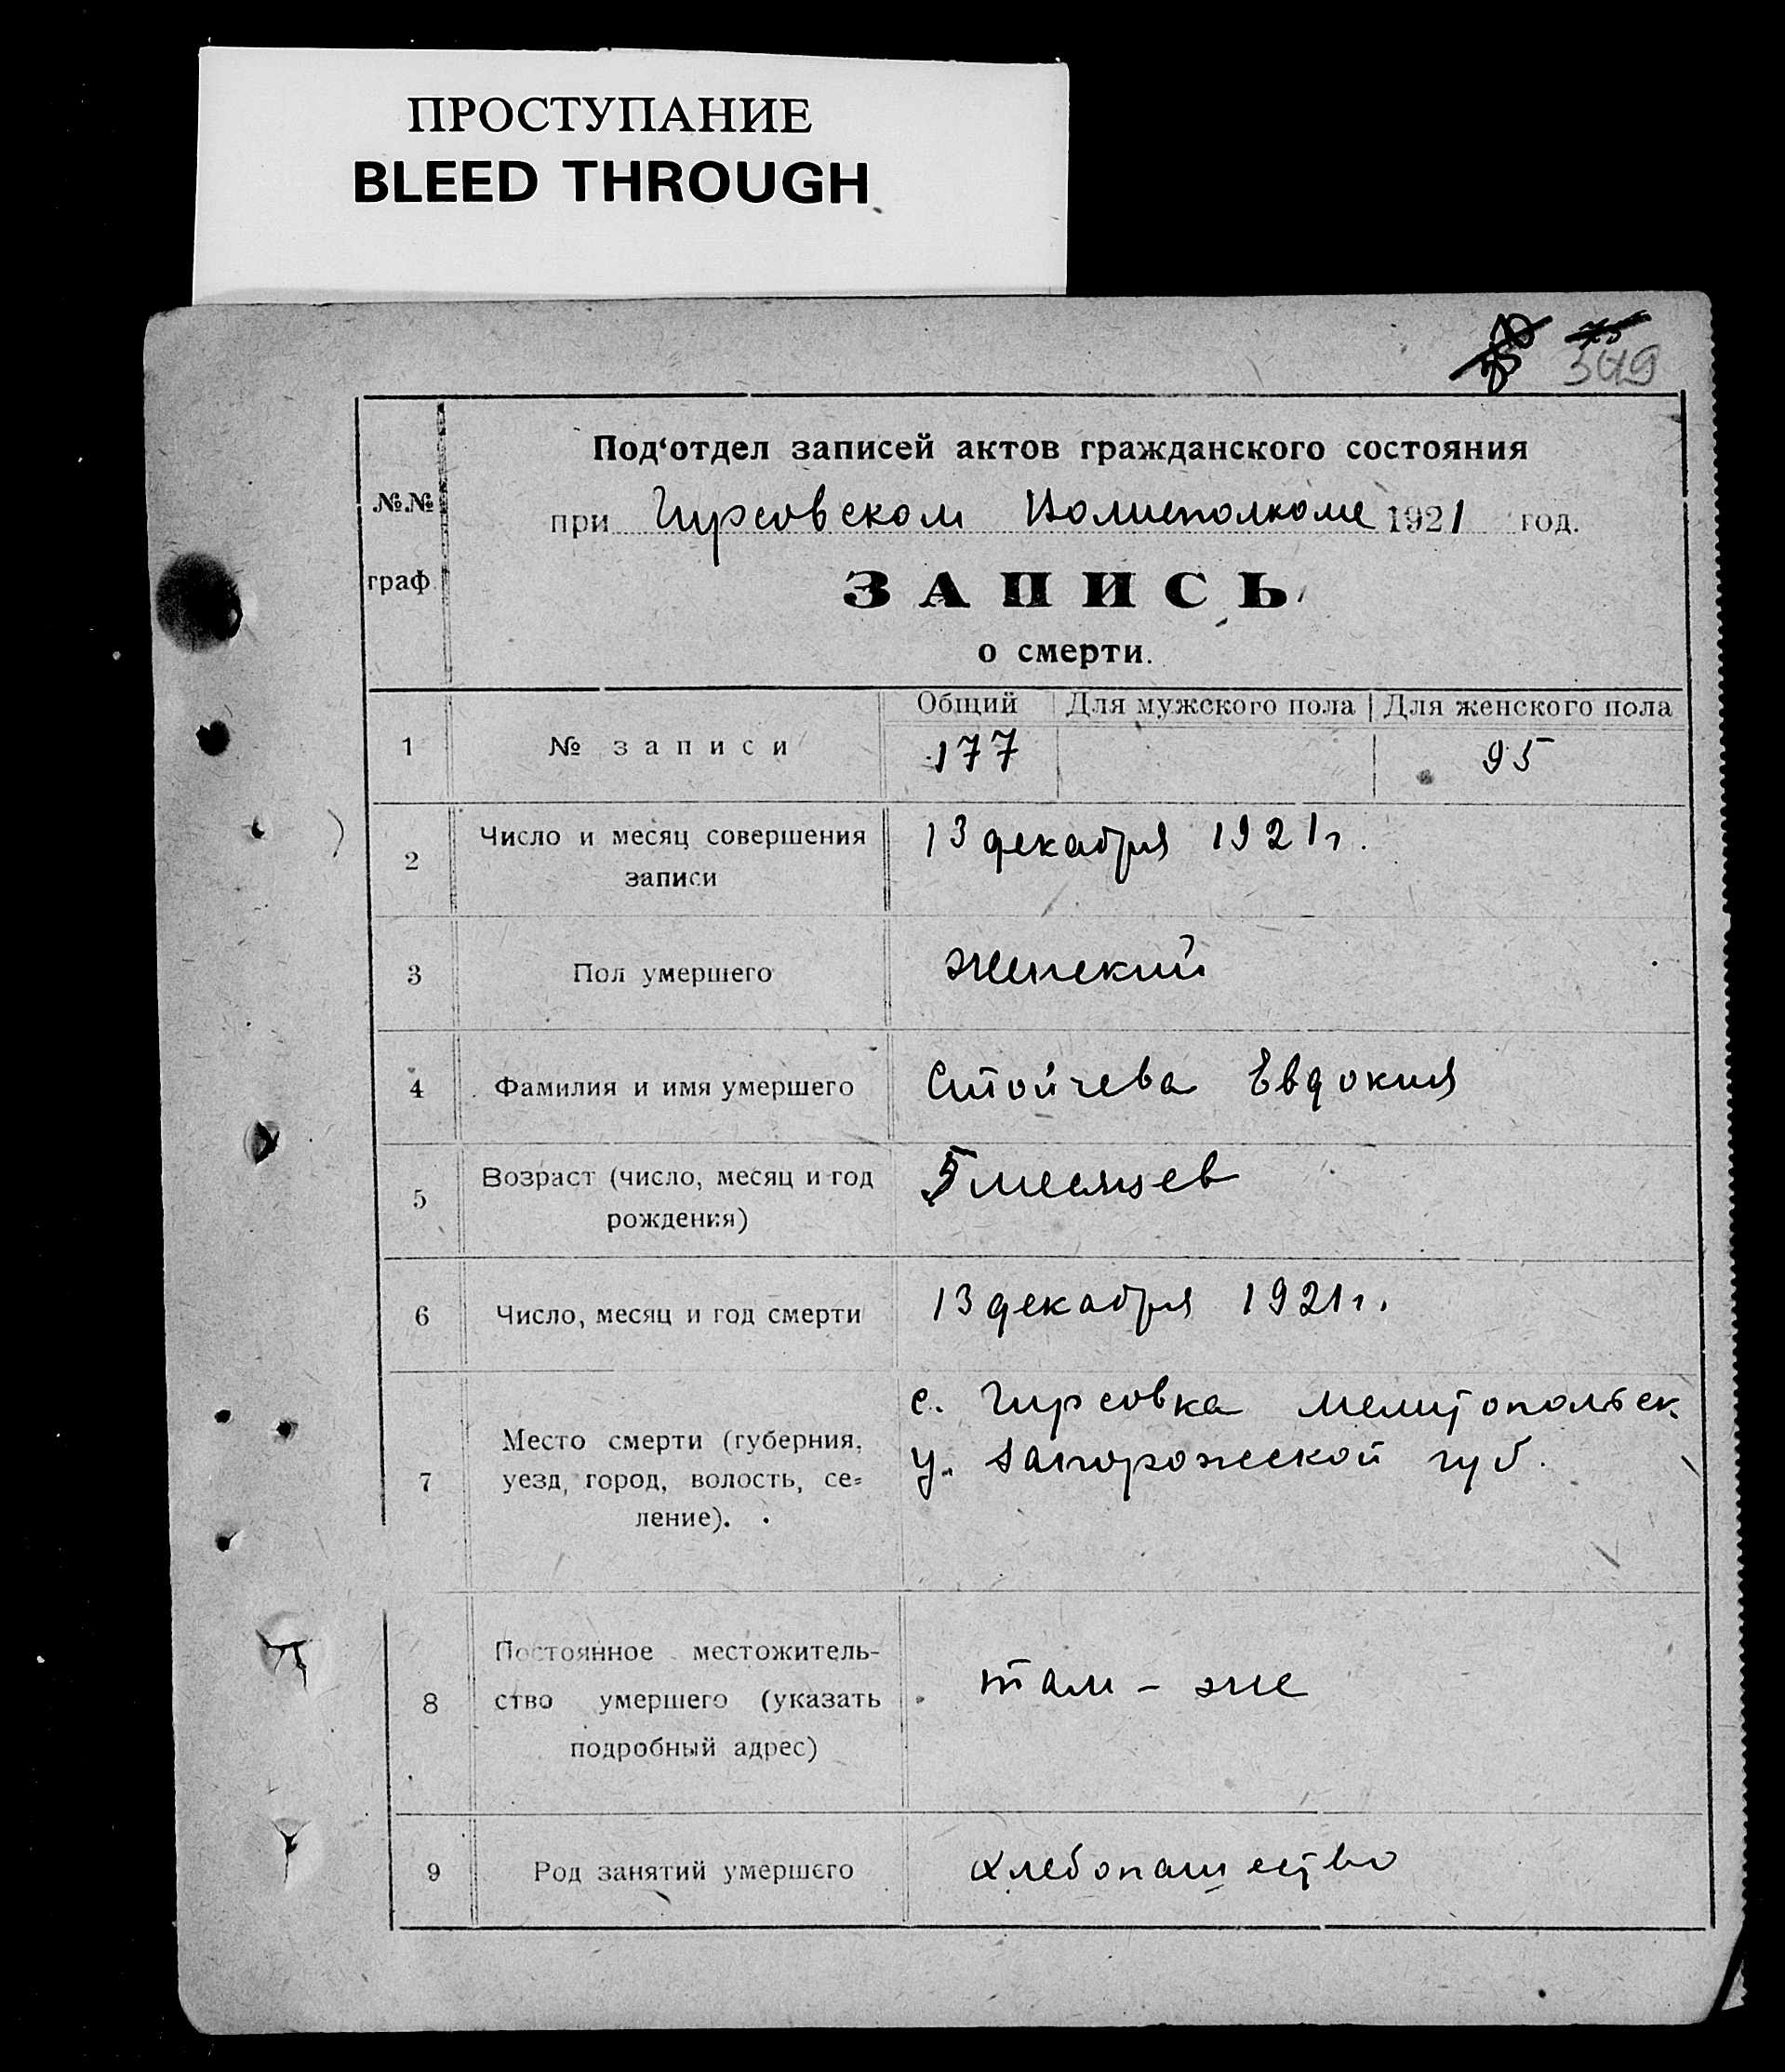 ПРОСТУПАНИЕ
BLEED THROUGH
349
Под‘отдел записей актов гражданского состояния
№.№
граф.
при Гирсовском Волисполкоме 1921 год.
ЗАПИСЬ
о смерти.
Общий Для мужского пола Для женского пола
1 № записи 177 95
2 Число и месяц совершения
записи
13 декабря 1921 г.
3 Пол умершего женский
4 Фамилия и имя умершего Стойчева Евдокия
5 Возраст (число, месяц и год
рождения)
5 месяцев
6 Число, месяц и год смерти 13 декабря 1921 г.
7 Место смерти (губерния,
уезд, город, волость, се=
ление).
с. Гирсовка Мелитопольск.
у. Запорожской губ.
8 Постоянное местожитель-
ство умершего (указать
подробный адрес)
там - же
9 Род занятий умершего хлебопашество